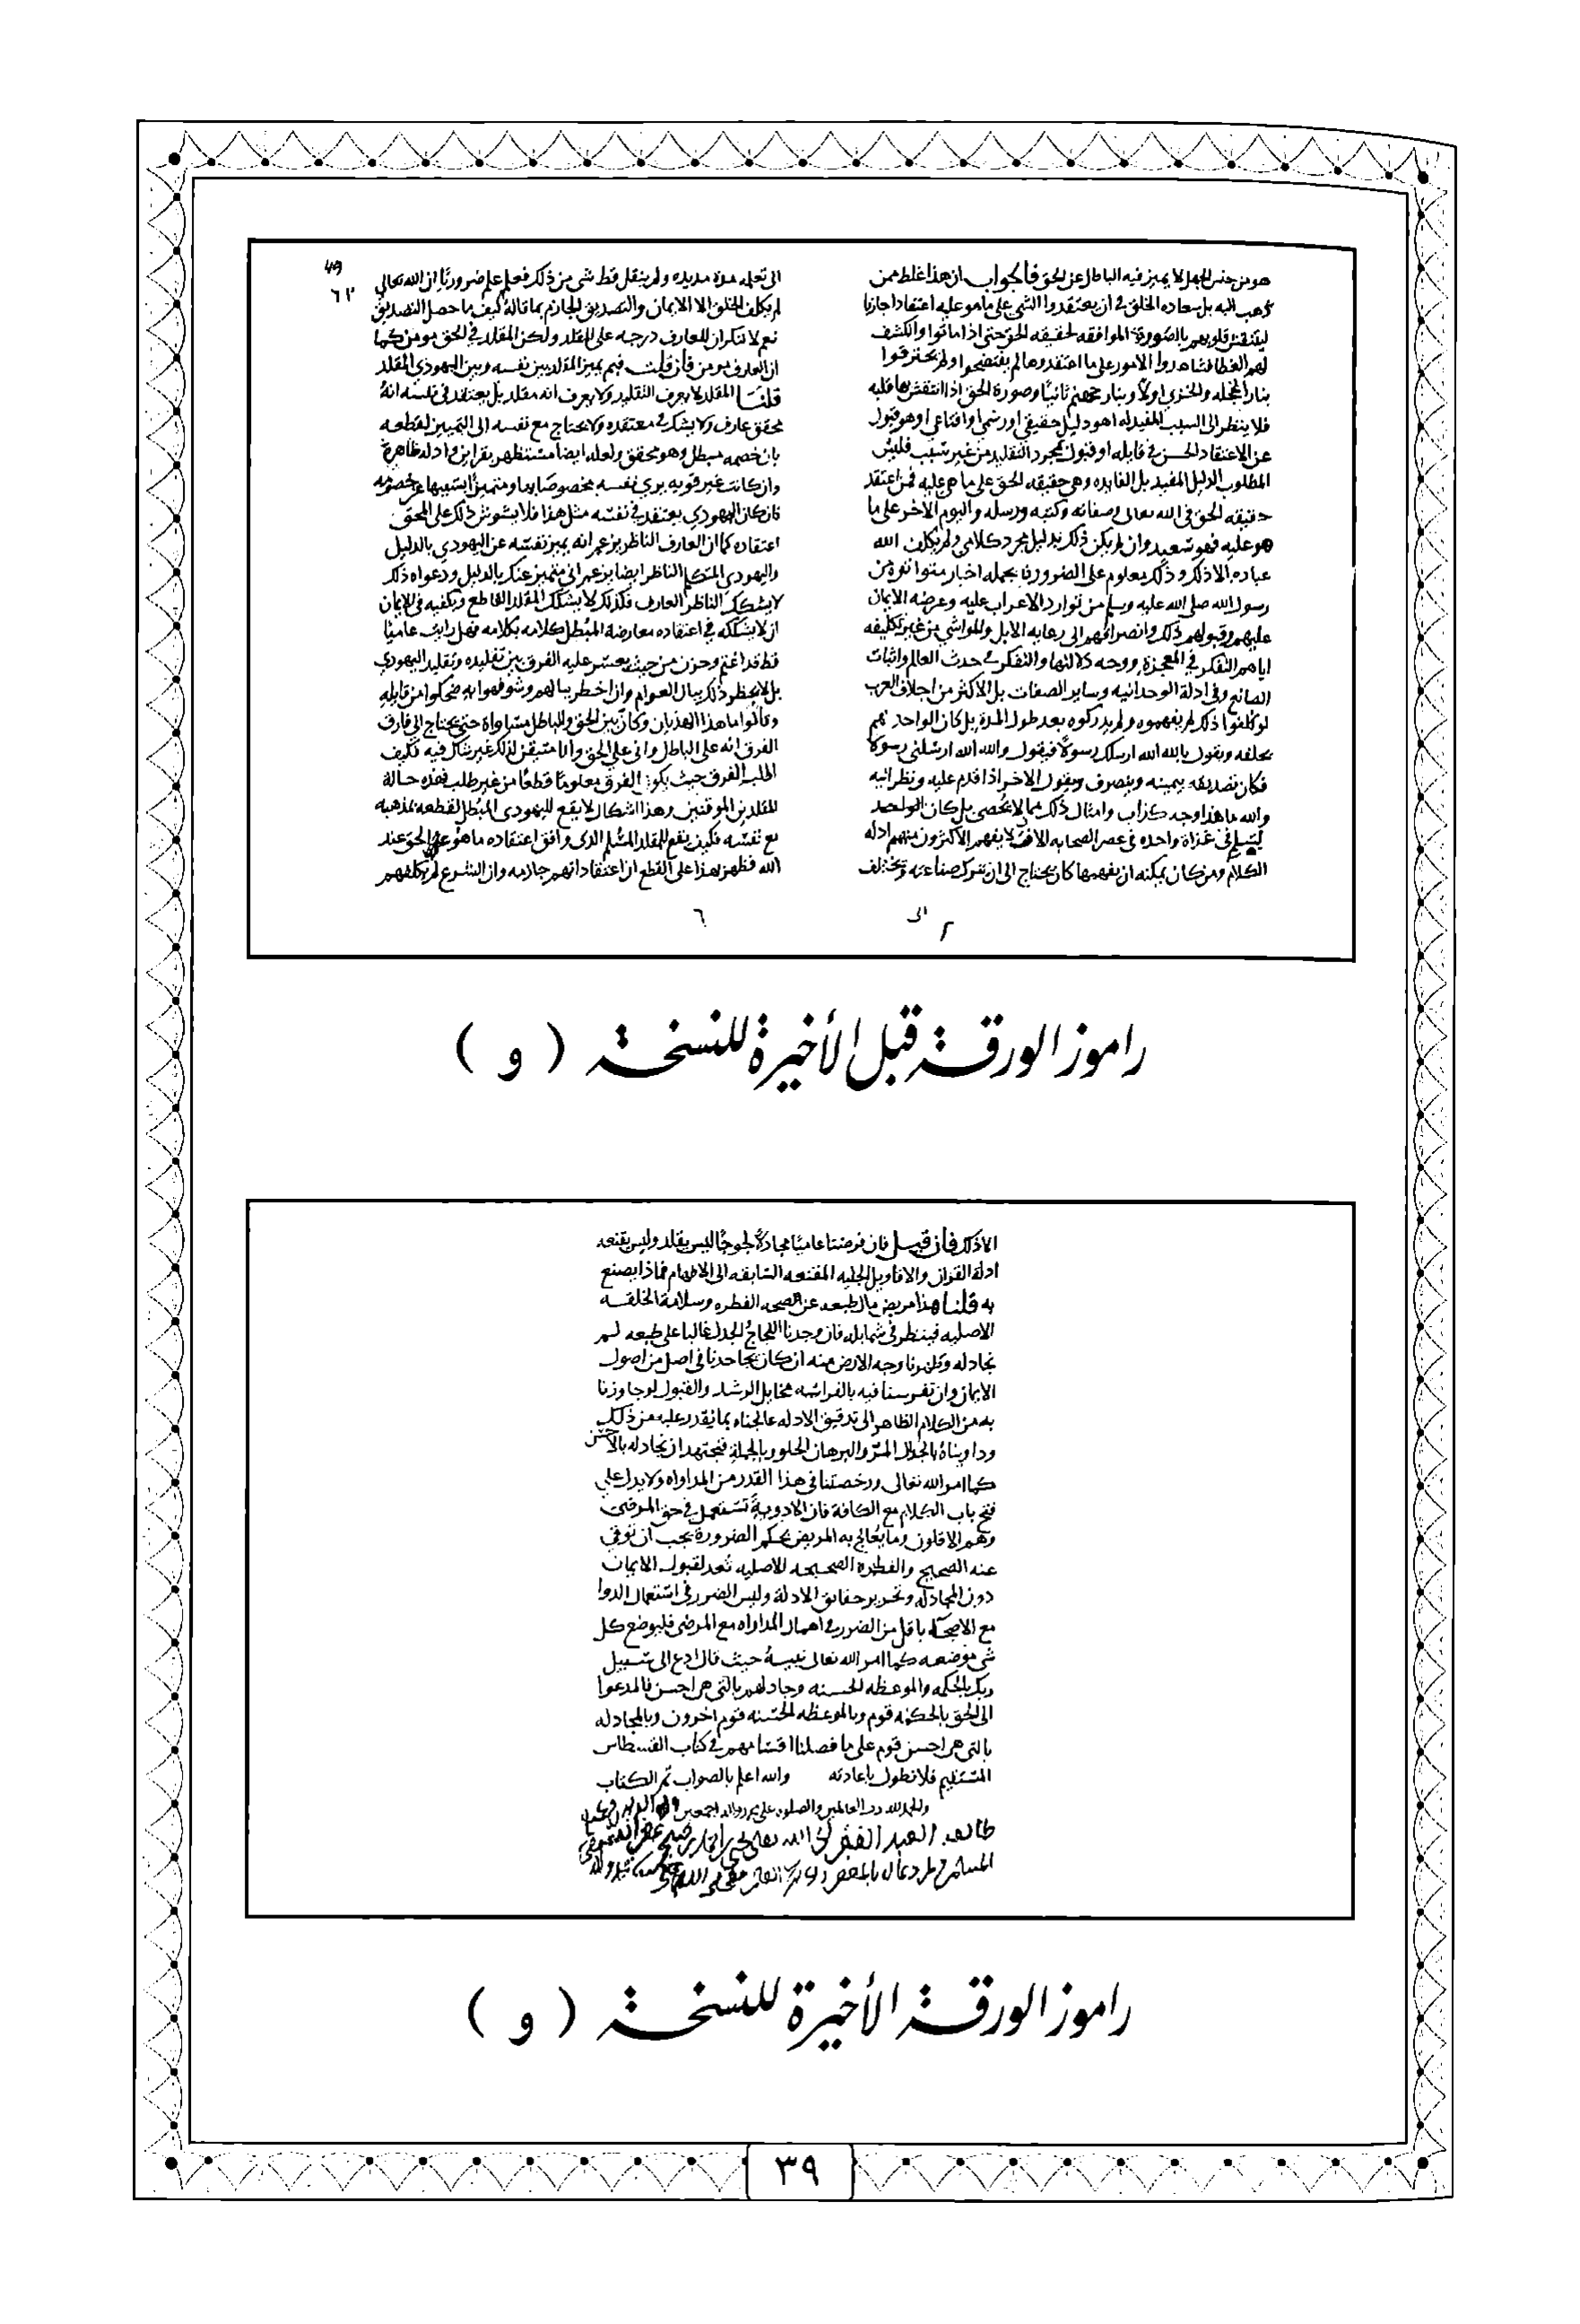 هو من جنس الجهل لا يميز فيه الباطل عن الحق فالجواب ان هذا غلط ممن
ذهب اليه بل سعاده الخلق في ان يعتقدوا الشي على ما هو عليه اعتقادا جازما
لتنتقش قلوبهم بالصورة الموافقه لحقيقه الحق حتى اذا ماتوا وانكشف
لهم الغطا فشاهدوا الامور على ما اعتقدوها لم يفتضحوا ولم يحترقوا
بنار الخجله والخزي اولا وبنار جهنم ثانيا وصورة الحق اذا انتقش بها قلبه
فلا ينظر الى السبب المفيد له اهو دليل حقيقي او رسمي او اقناعي او هو قبول
عن الاعتقاد الحسن في قايله او قبول لمجرد التقليد من غير سبب فليس
المطلوب الدليل المفيد بل الفايده وهي حقيقه الحق على ما هي عليه فمن اعتقد
حقيقه الحق في الله تعالى وصفاته وكتبه ورسله واليوم الاخر على ما
هو عليه فهو سعيد وان لم يكن ذلك بدليل مجرد كلامي ولم يكلف الله
عباده الا ذلك وذلك معلوم على الضرورة بجمله اخبار متواترة من
رسول الله صلى الله عليه وسلم من توارد الاعراب عليه وعرضه الايمان
عليهم وقبولهم ذلك وانصرافهم الى رعايه الابل والمواشي من غير تكليفه
اياهم التفكر في المعجزة ووجه دلالتها والتفكر في حدث العالم واثبات
الصانع وفي ادلة الوحدانيه وساير الصفات بل الاكثر من اجلاف العرب
لو كلفوا ذلك لم يفهموه ولم يدركوه بعد طول المدة بل كان الواحد منهم
يحلفه ويقول بالله الله ارسلك رسولا فيقول والله الله ارسلني رسولا
فكان يصدقه بيمينه وينصرف ويقول الاخر اذا قدم عليه ونظر اليه
والله ما هذا وجه كذاب وامثال ذلك مما لا يحصى بل كان الواحد
يسلم في غزاة واحده في عصر الصحابه الاف لا يفهم الاكثرون منهم ادله
الكلام ومن كان يمكنه ان يفهمها كان يحتاج الى ان يترك صناعته ويختلف
٤٩
٦٢
الى تعلمه مدة مديده ولم ينقل قط شي من ذلك فعلم علم ضروريا ان الله تعالى
لم يكلف الخلق الا الايمان والتصديق الجازم بما قاله كيف ما حصل التصديق
نعم لا ننكر ان للعارف درجه على المقلد ولكن المقلد في الحق مومن كما
ان العارف مومن فان قلت فبم يميز المقلد بين نفسه وبين اليهودي المقلد
قلنا المقلد لا يعرف التقليد ولا يعرف انه مقلد بل يعتقد في نفسه انه
محقق عارف ولا يشك في معتقده ولا يحتاج مع نفسه الى التمييز لقطعه
بان خصمه مبطل وهو محقق ولعله ايضا مستظهر بقراين وادلة ظاهرة
وان كانت غير قويه يرى نفسه مخصوصا بها ومتميزا بسببها عن خصومه
فان كان اليهودي يعتقد في نفسه مثل هذا فلا يشوش ذلك على المحق
اعتقاده كما ان العارف الناظر يزعم انه يميز نفسه عن اليهودي بالدليل
واليهودي المتكلم الناظر ايضا يزعم اني متميز عنك بالدليل ودعواه ذلك
لا يشكك الناظر العارف فكذلك لا يشكك المقلد القاطع ويكفيه في الايمان
ان لا يشككه في اعتقاده معارضة المبطل كلامه بكلامه فهل رايت عاميا
قط قد اغتم وحزن من حيث يعسر عليه الفرق بين تقليده وتقليد اليهودي
بل لا يخطر ذلك ببال العوام وان اخطر ببالهم وشوفهوا به ضحكوا من قايله
وقالوا ما هذا الهذيان وكان بين الحق والباطل مساواة حتى يحتاج الى فارق
الفرق انه على الباطل واني على الحق وانا متيقن لذلك غير شاك فيه فكيف
اطلب الفرق حيث يكون الفرق معلوما قطعا من غير طلب فهذه حالة
المقلدين الموقنين وهذا اشكال لا يقع لليهودي المبطل لقطعه بمذهبه
مع نفسه فكيف يقع للمقلد المسلم الذي وافق اعتقاده ما هو الحق عند
الله فظهر بهذا على القطع ان اعتقاداتهم جازمه وان الشرع لم يكلفهم
راموز الورقة قبل الأخيرة للنسخة ( و )
الا ذلك فان قيل فان فرضنا عاميا مجادلا لجوجا ليس يقلد وليس يقنعه
ادلة القران والاقاويل الجليه المقنعه السابقه الى الافهام فماذا يصنع
به قلنا هذا مريض مال طبعه عن صحه الفطره وسلامة الخلقه
الاصليه فينظر في شمايله فان وجدنا اللجاج والجدل غالبا على طبعه لم
نجادله وطهرنا وجه الارض منه ان كان يجاحدنا في اصل من اصول
الايمان وان تفرسنا فيه بالفراسه مخايل الرشد والقبول لو جاوزنا
به من الكلام الظاهر الى تدقيق الادله عالجناه بما نقدر عليه من ذلك
وداويناه بالجدال المر والبرهان الحلو وبالجملة فنجتهد ان نجادله بالاحسن
كما امر الله تعالى ورخصتنا في هذا القدر من المداواه ولا يدل على
فتح باب الكلام مع الكافة فان الادوية تستعمل في حق المرضى
وهم الاقلون وما يعالج به المريض بحكم الضرورة يجب ان يوقى
عنه الصحيح والفطرة الصحيحه الاصليه تعد لقبول الايمان
دون المجادله وتحرير حقايق الادلة وليس الضرر في استعمال الدوا
مع الاصحا باقل من الضرر في اهمال المداواه مع المرضى فليوضع كل
شي موضعه كما امر الله تعالى نبيه حيث قال ادع الى سبيل
ربك بالحكمه والموعظه الحسنه وجادلهم بالتي هي احسن فالمدعوا
الى الحق بالحكمه قوم وبالموعظه الحسنه قوم اخرون وبالمجادله
بالتي هي احسن قوم على ما فصلنا اقسامهم في كتاب القسطاس
المستقيم فلا نطول باعادته والله اعلم بالصواب تم الكتاب
والحمد لله رب العالمين والصلوه على محمد واله اجمعين
طالعه العبد الفقير الى الله تعالى
راموز الورقة الأخيرة للنسخة ( و )
٣٩